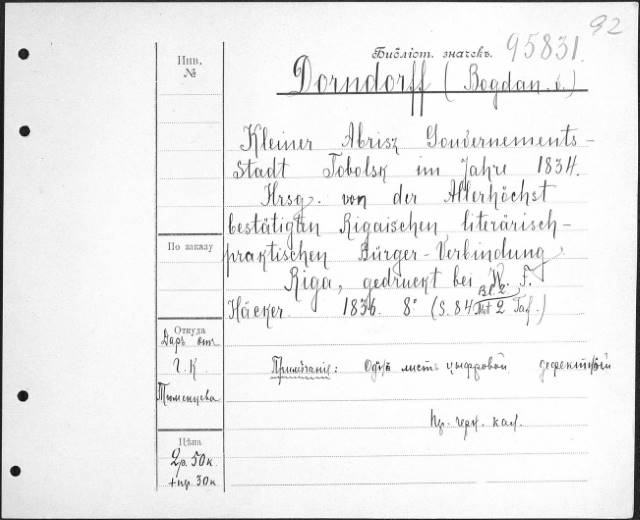 92
Библіот. значекъ. 95831.
Инв.
№
Dorndorff (Bogdan. v.)
Kleiner Abrisz Gouvernements-
Stadt Tobolsk im Jahre 1834.
Hrsg. von der Allerhöchst
bestätigten Rigaischen literärisch-
По заказу
praktischen Bürger-Verbindung,
Riga, gedruckt bei W. F.
Häcker. 1836. 8° (S. 84 Bl. 2 2 Taf.)
Откуда
Даръ отъ
Г. К.
Тюменцева
Примѣчаніе: Одинъ листъ цыфровой дефектный
Пр. черн. кал.
Цѣна
2р. 50к.
+пр. 30к.